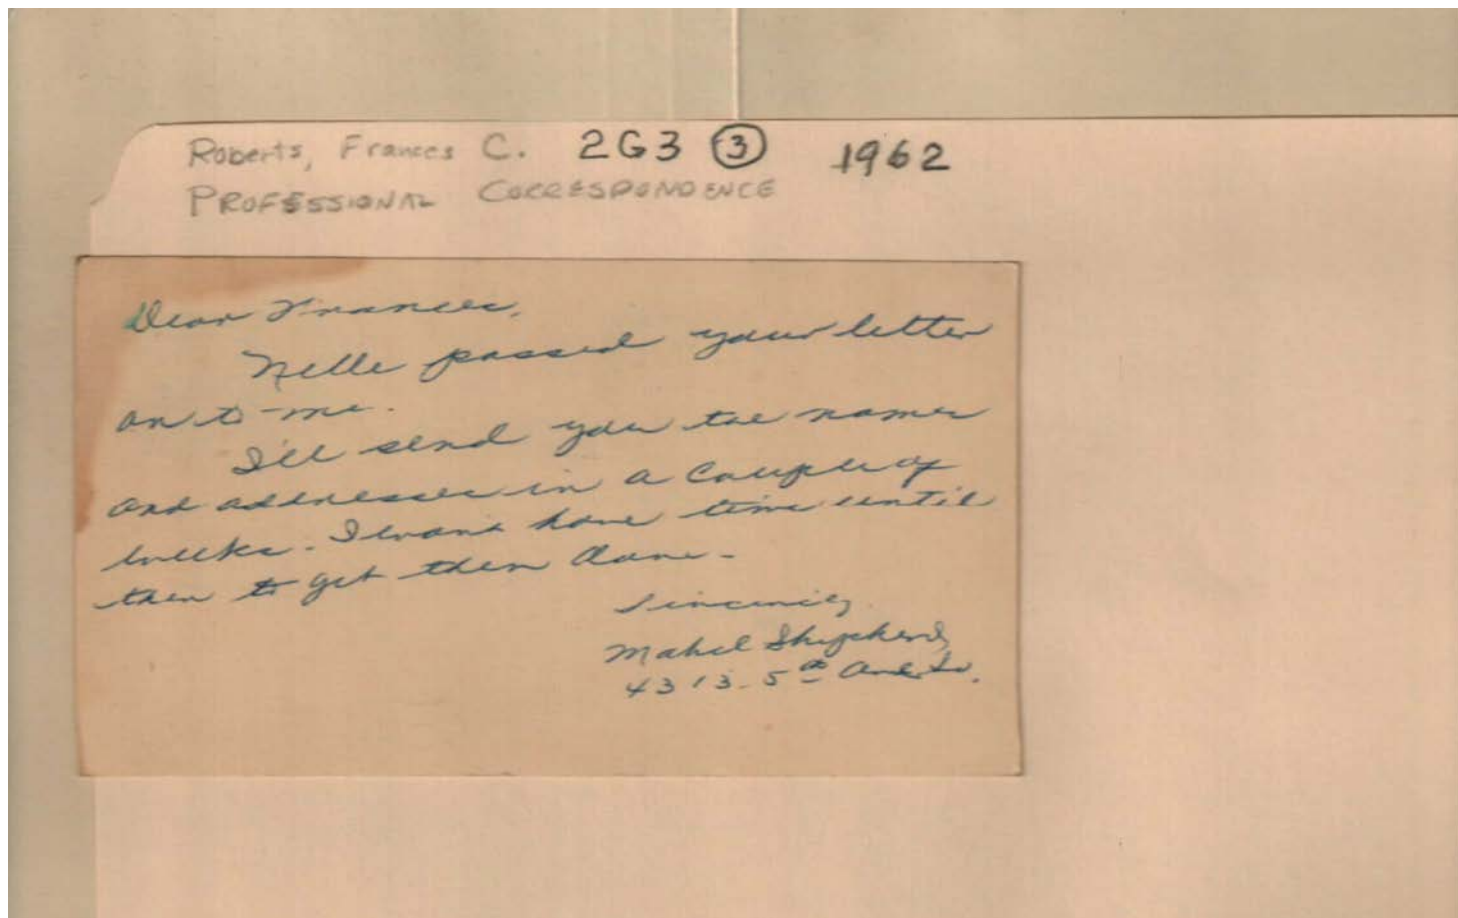 Roberts, Frances C. 2G3 ③ 1962
PROFESSIONAL CORRESPONDENCE
Dear Frances,
Nelle passed your letter
on to me.
I'll send you the names
and addresses in a couple of
weeks. I wont have time until
then to get them done.
Sincerely,
Mabel Shepherd,
4313 - 5th Ave So.